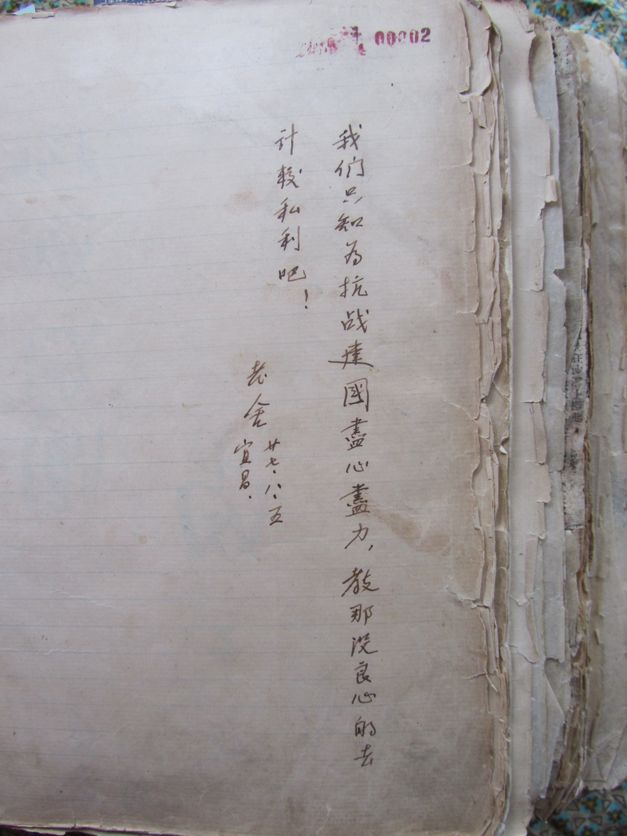 00002
我们只知为抗战建國盡心盡力，教那没良心的去
计较私利吧！
老舍 廿七、八、五
宜昌、